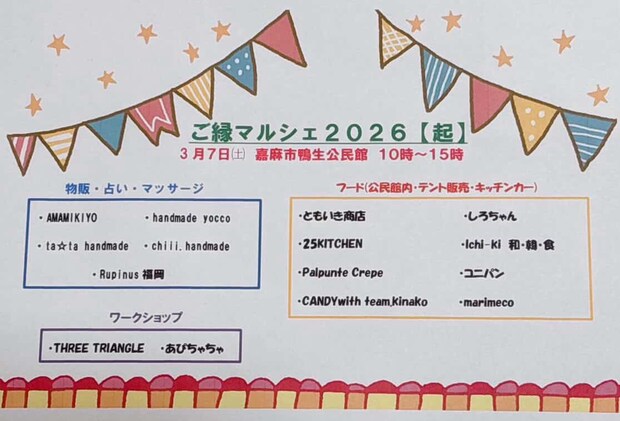 ご縁マルシェ2026【起】
3月7日㈯ 嘉麻市鴨生公民館 10時～15時
物販・占い・マッサージ
・AMAMIKIYO ・handmade yocco
・ta☆ta handmade ・chiii.handmade
・Rupinus福岡
ワークショップ
・THREE TRIANGLE ・あぴちゃちゃ
フード(公民館内・テント販売・キッチンカー)
・ともいき商店 ・しろちゃん
・25KITCHEN ・Ichi-Ki 和・韓・食
・Palpunte Crepe ・コニパン
・CANDYwith team,kinako ・marimeco